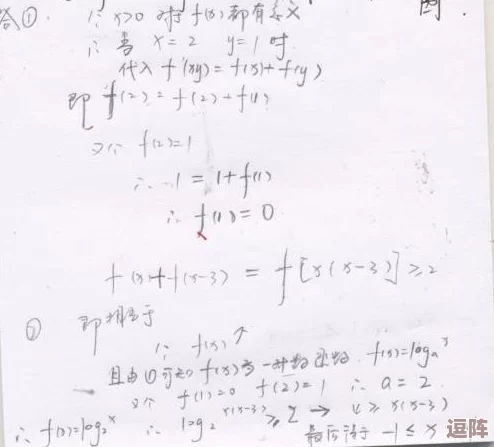 答①. ∵ x>0 时 f(x) 都有意义
∴ 当 x=2 y=1 时
代入 f(xy)=f(x)+f(y)
即 f(2)=f(2)+f(1)
又∵ f(2)=1
∴ 1=1+f(1)
∴ f(1)=0
f(x)+f(x-3)=f[x(x-3)]≥2
② 即相当于
∵ f(x)↑
且由①可知 f(x)为一对数函数. f(x)=logₐx
又∵ f(1)=0 f(2)=1 ∴ a=2
∴ f(x)=log₂x ∴ log₂x(x-3)≥2 → 4≥x(x-3)
最后得 -1≤x
逗阵